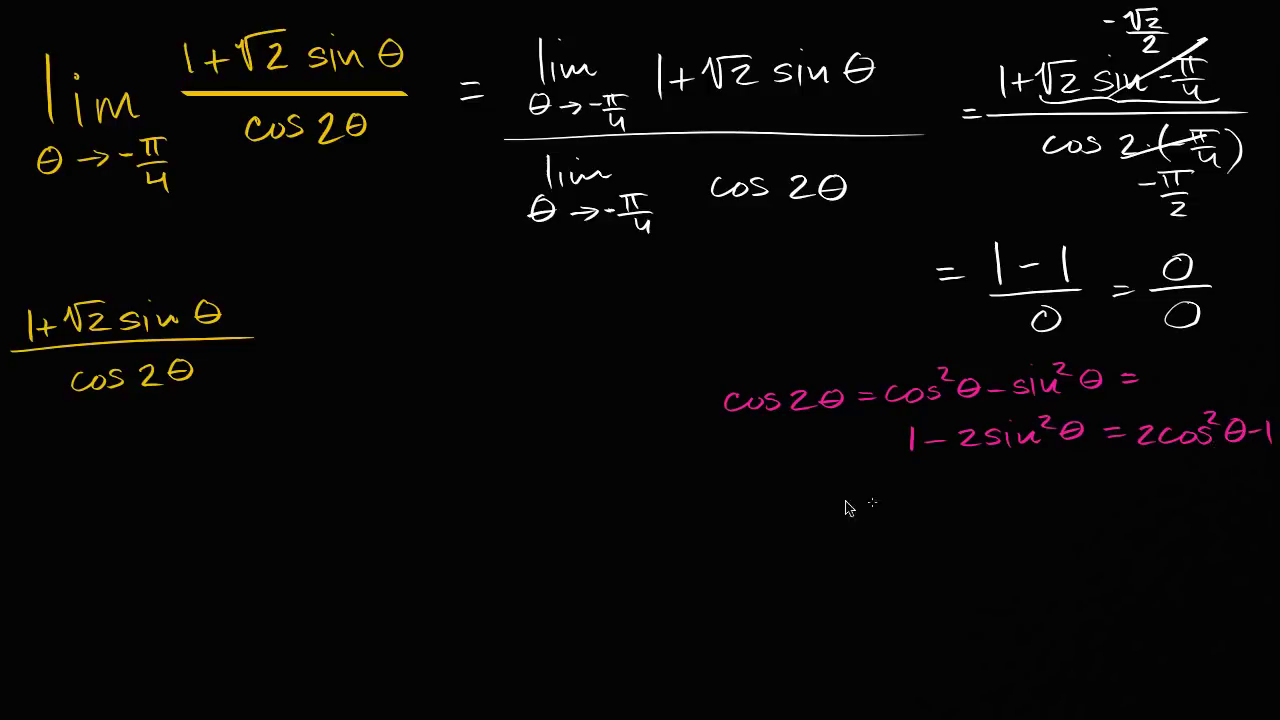 lim θ→-π/4 (1+√2 sin θ)/(cos 2θ) = (lim θ→-π/4 1+√2 sin θ)/(lim θ→-π/4 cos 2θ) = (1+√2 sin -π/4)/(cos 2·(-π/4))
-√2/2
-π/2
= (1-1)/0 = 0/0
(1+√2 sin θ)/(cos 2θ)
cos 2θ = cos²θ - sin²θ =
1 - 2sin²θ = 2cos²θ-1